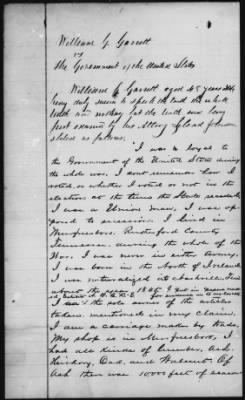 William G. Garrett
vs
The Government of the United States
William G Garrett aged 45 years old,
being duly sworn to speak the truth the whole
truth and nothing but the truth and being
first examined by his Attorney
stated as follows;
I was loyal to
the Government of the United States during
the whole war. I dont remember how I
voted, or whether I voted or not in the
election at the time the State seceded.
I was a Union man, I was op
posed to secession. I lived in
Murfreesboro, Rutherford County
Tennessee, during the whole of the
War. I was never in either Army.
I was born in the North of Ireland
I was naturalized at Nashville Tenn
about the year 1846
I was the sole owner of the articles
taken, mentioned in my claim,
I am a carriage maker by trade,
My shop is in Murfreesboro, I
had all kinds of lumber, Ash,
Hickory, Oak, and Walnut. Of
Ash there was 10000 feet of